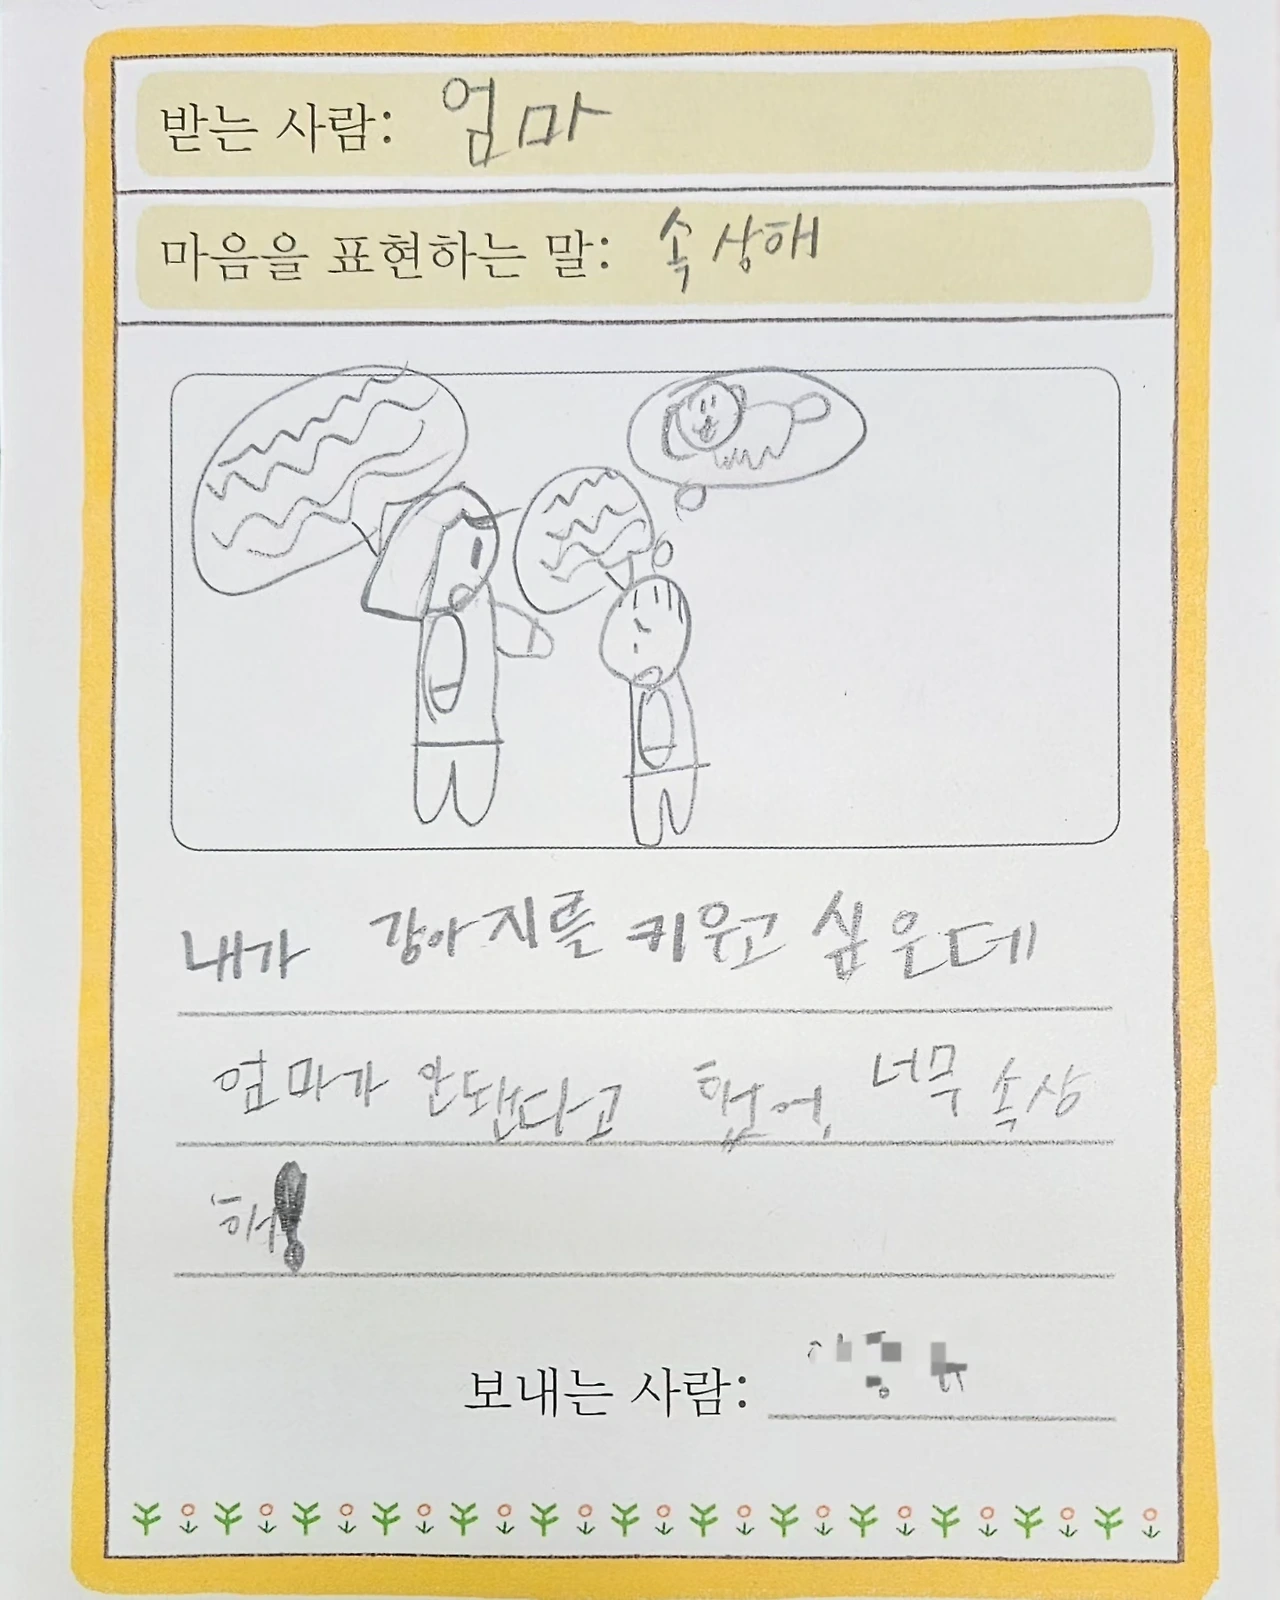 받는 사람: 엄마
마음을 표현하는 말: 속상해
내가 강아지를 키우고 싶은데
엄마가 안됀다고 했어, 너무 속상
해!
보내는 사람: